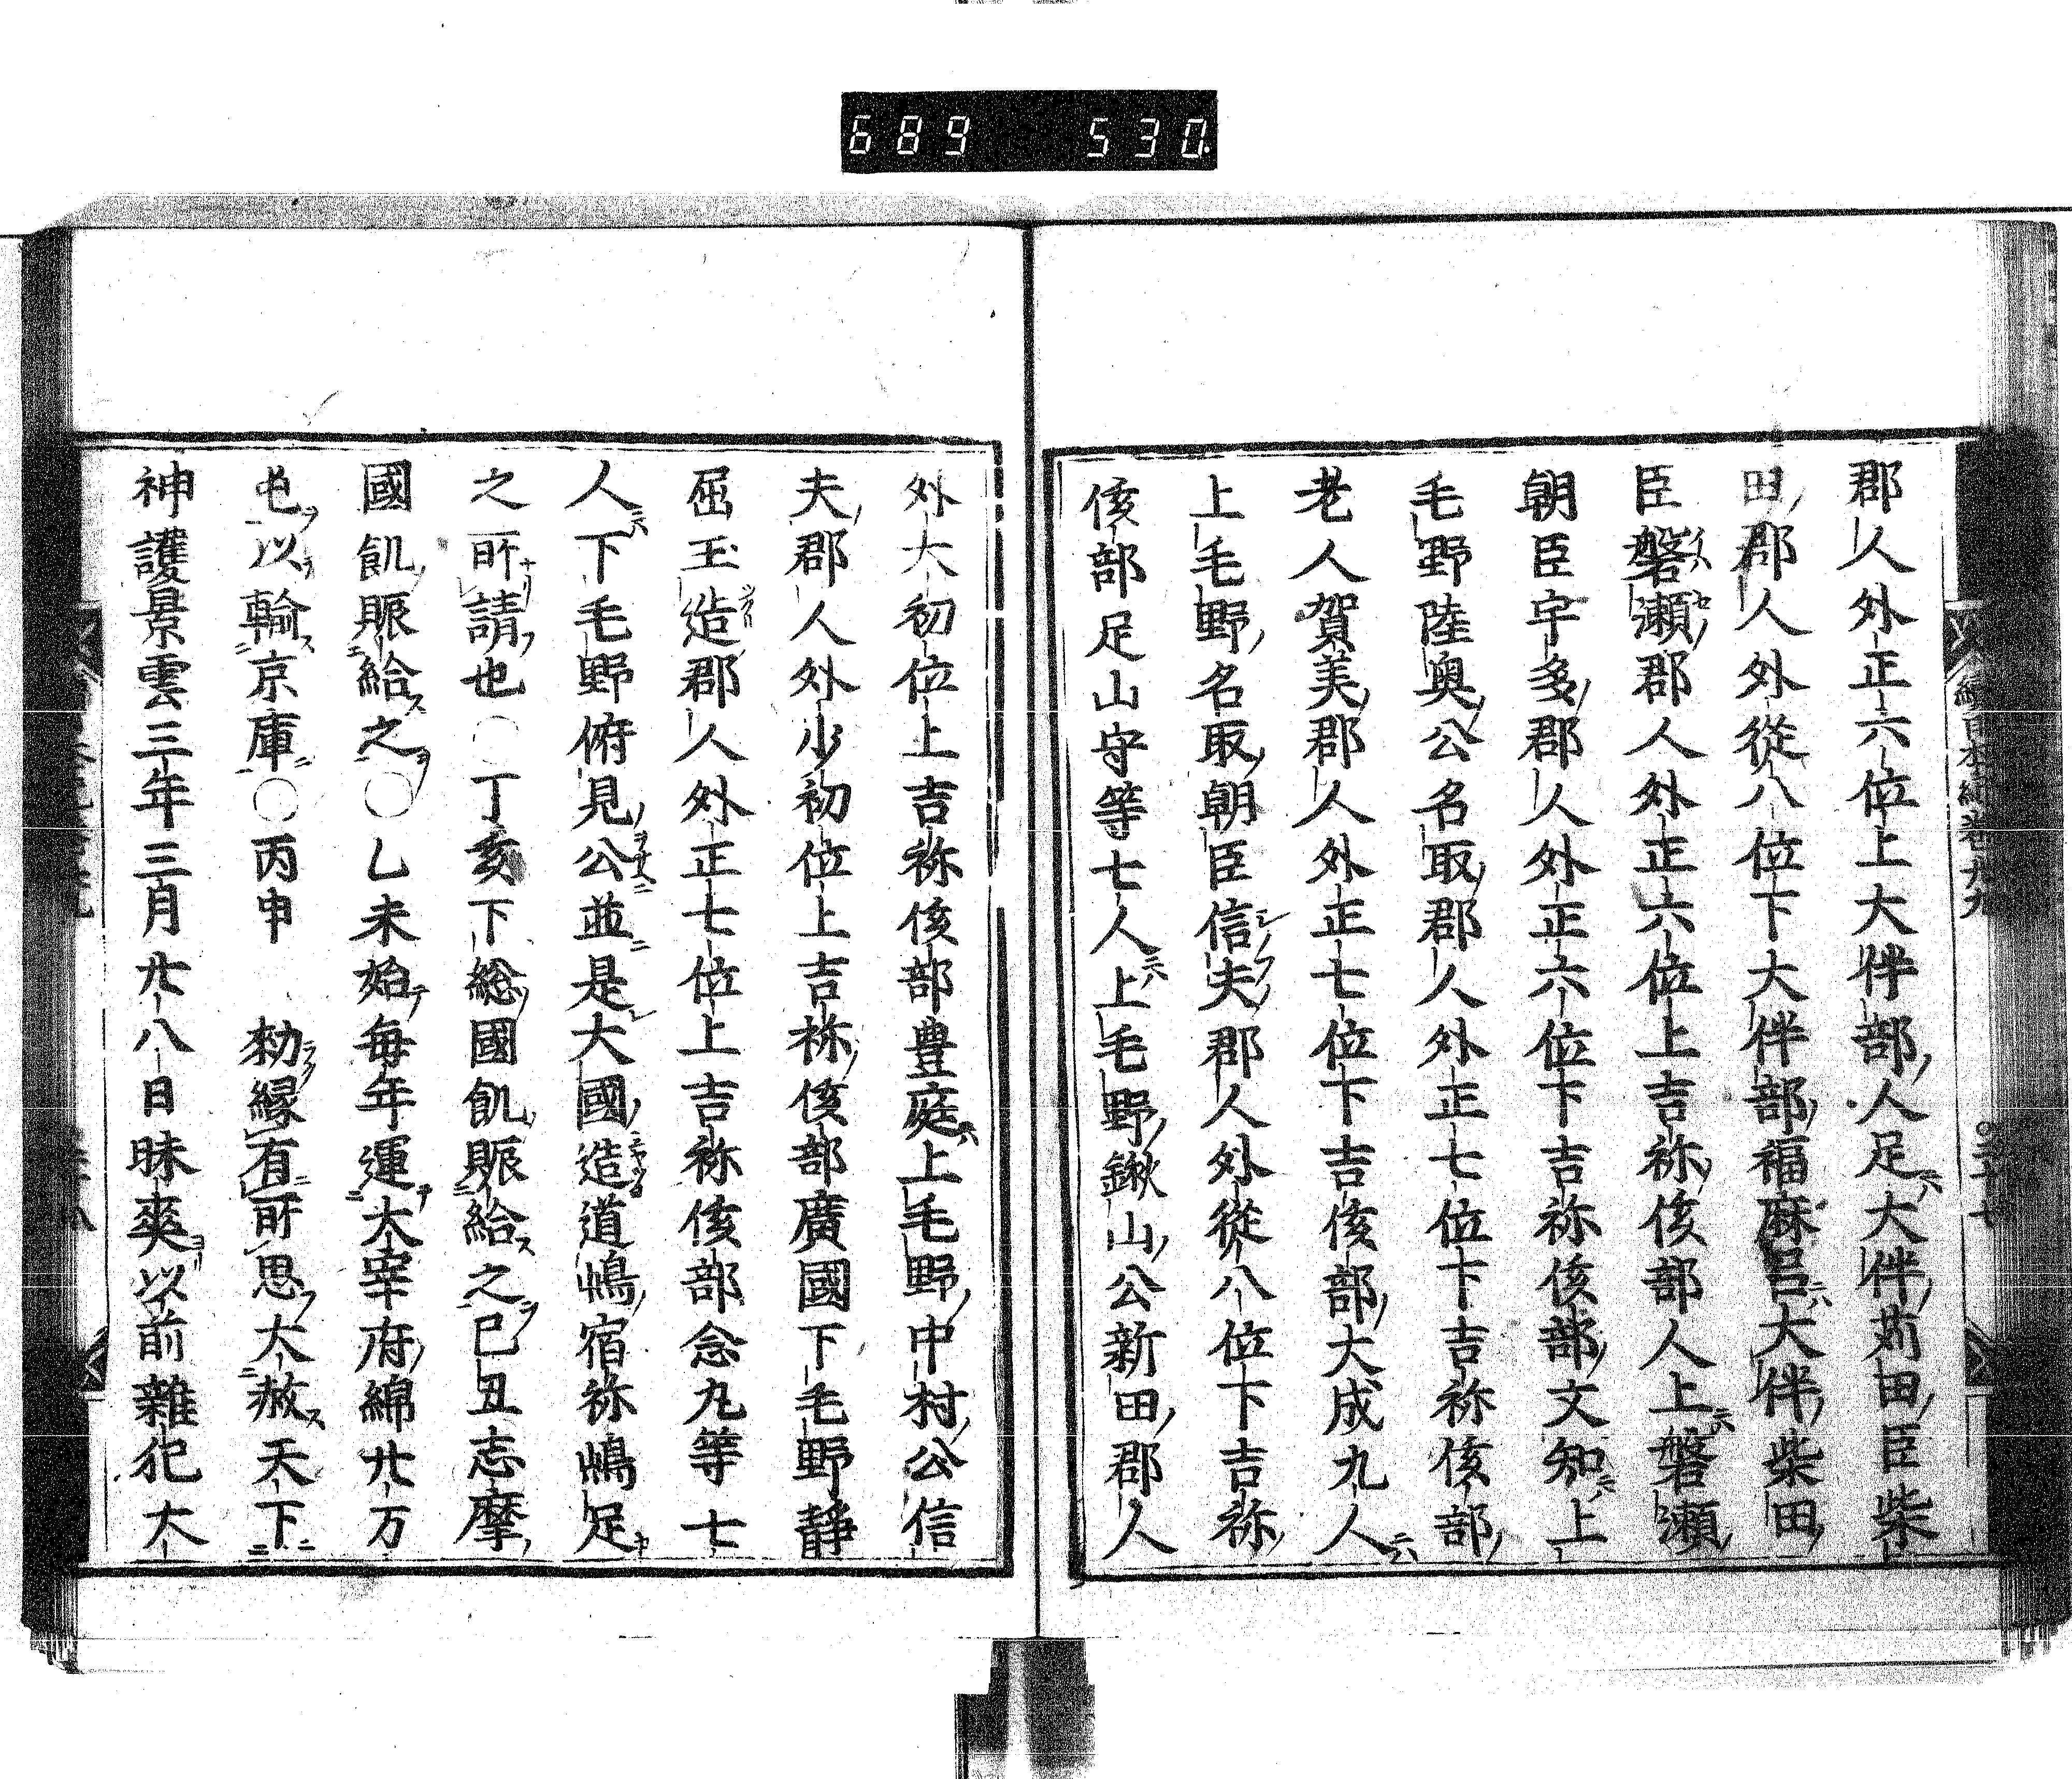 689 530
郡人外正六位上大伴部人足大伴苅田臣柴
田郡人外從八位下大伴部福麻呂大伴柴田
臣磐瀬郡人外正六位上吉祢侯部人上磐瀬
朝臣宇多郡人外正六位下吉祢侯部文知上
毛野陸奥公名取郡人外正七位下吉祢侯部
老人賀美郡人外正七位下吉侯部大成九人
上毛野名取朝臣信夫郡人外從八位下吉祢
侯部足山守等七人上毛野鍬山公新田郡人
外大初位上吉祢侯部豊庭上毛野中村公信
夫郡人外少初位上吉祢侯部廣國下毛野静
戸公玉造郡人外正七位上吉祢侯部念丸等七
人下毛野俯見公並是大國造道嶋宿祢嶋足
之所請也○丁亥下総國飢賑給之已丑志摩
國飢賑給之○乙未始毎年運太宰府綿廿万
屯以輸京庫○丙申 勅縁有所思大赦天下
神護景雲三年三月廿八日昧爽以前雜犯大